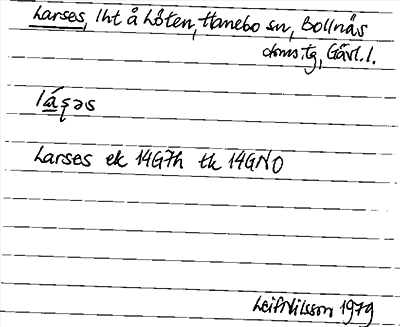 Larses, lht å Löten, Hanebo sn, Bollnäs
doms.tg, Gävl. l.
láşəs
Larses ek 14G7h tk 14GNO
Leif Nilsson 1979